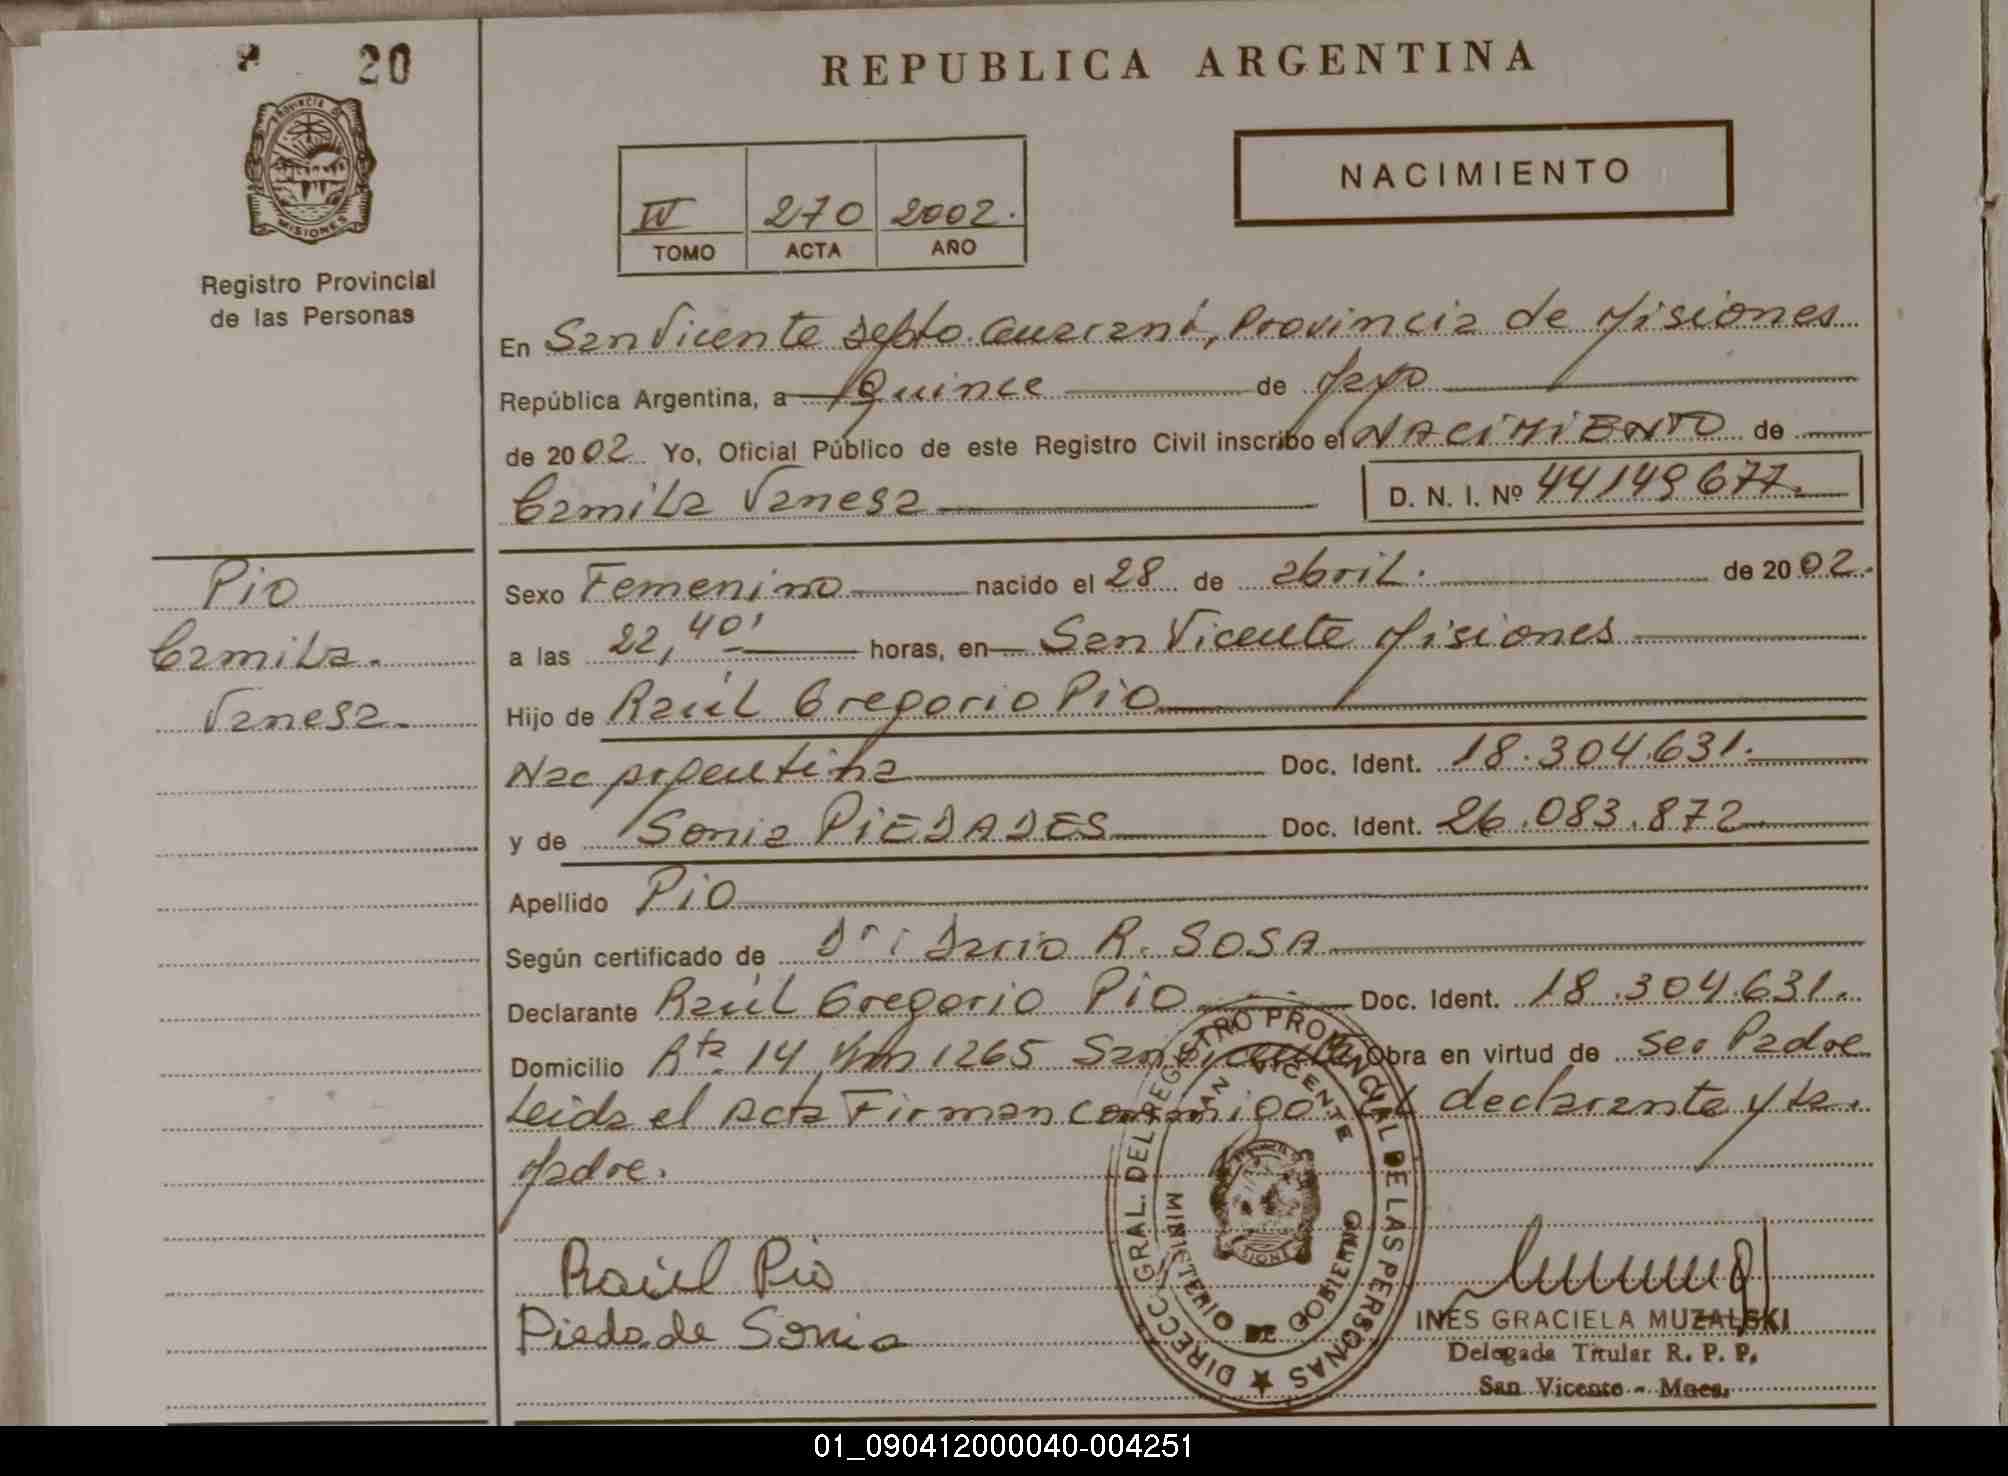 20
REPUBLICA ARGENTINA
PROVINCIA DE MISIONES
NACIMIENTO
IV 270 2002.
TOMO ACTA AÑO
Registro Provincial
de las Personas
En San Vicente Depto. Guaraní, Provincia de Misiones
República Argentina, a Quince de Mayo
de 2002 Yo, Oficial Público de este Registro Civil inscribo el NACIMIENTO de
Camila Vanesa D. N. I. Nº 44149677.
Pio
Camila.
Vanesa.
Sexo Femenino nacido el 28 de abril. de 2002.
a las 22,40' horas, en San Vicente Misiones
Hijo de Raúl Gregorio Pio
Nac argentina Doc. Ident. 18.304.631.
y de Sonia PIEDADES Doc. Ident. 26.083.872
Apellido Pio
Según certificado de Dr: Dario R. SOSA
Declarante Raúl Gregorio Pio Doc. Ident. 18.304.631.
Domicilio Rta. 14 Km 1265 San Vicente Obra en virtud de ser Padre
Leida el Acta Firman conmigo el declarante y la
Madre.
Raúl Pio
Piedade Sonia
DIRECC. GRAL. DEL REGISTRO PROVINCIAL DE LAS PERSONAS
SAN VICENTE
MINISTERIO DE GOBIERNO
INES GRACIELA MUZALSKI
Delegada Titular R. P. P.
San Vicente - Mnes.
01_090412000040-004251